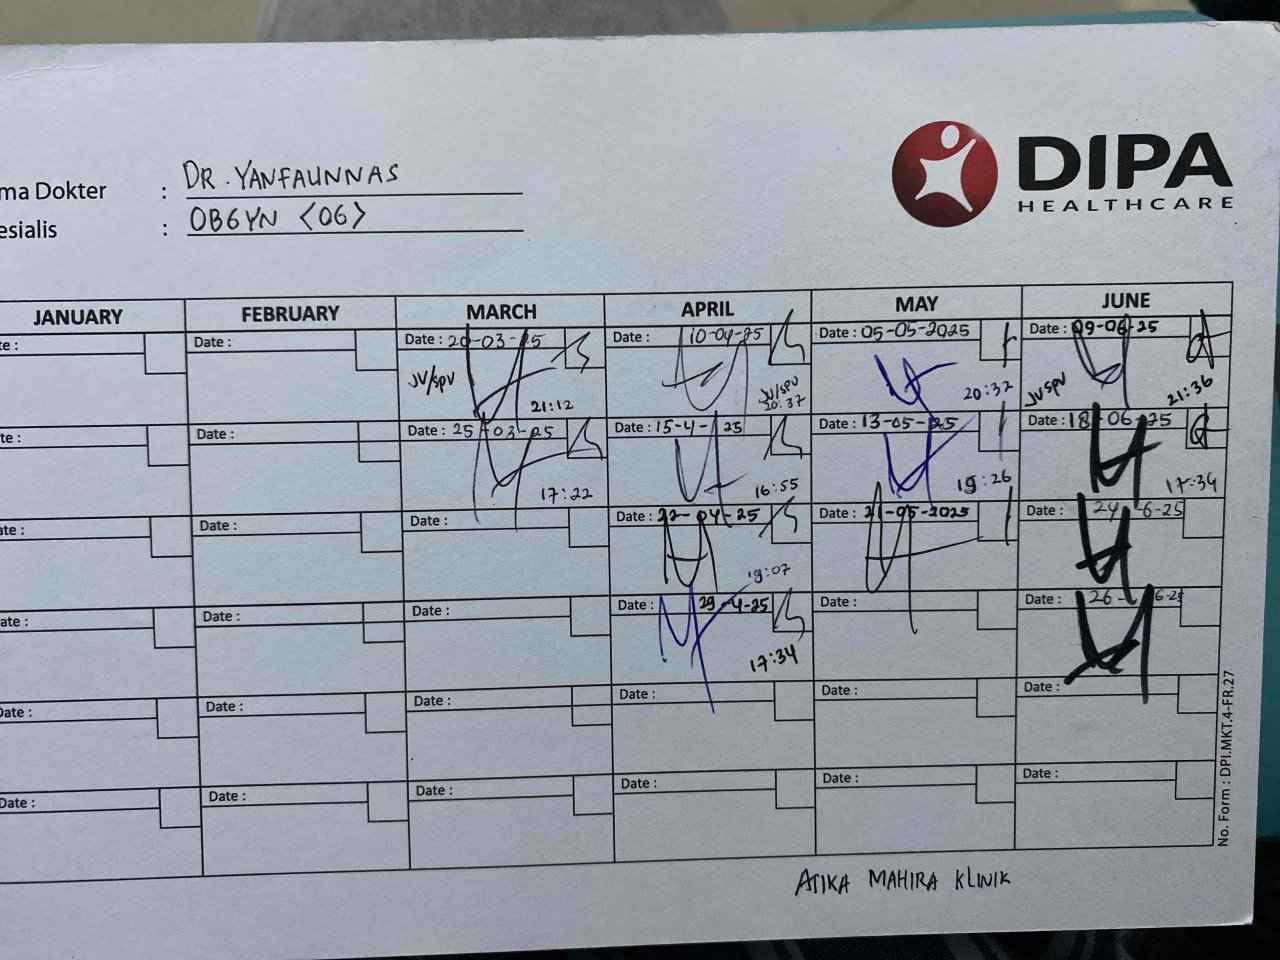 DIPA
HEALTHCARE
ma Dokter : DR. YANFAUNNAS
esialis : OBGYN <06>
JANUARY FEBRUARY MARCH APRIL MAY JUNE
te: Date : Date : 20-03-25 Date : 10-04-25 Date : 05-05-2025 Date : 09-06-25
JV/SPV 21:12 JV/SPV 20:37 20:32 JV SPV 21:36
te : Date : Date : 25-03-25 Date : 15-4-25 Date : 13-05-25 Date : 18-06-25
17:22 16:55 19:26 17:34
ate : Date : Date : Date : 22-04-25 Date : 21-05-2025 Date : 24-6-25
19:07
ate : Date : Date : Date : 29-4-25 Date : Date : 26-6-25
17:34
Date : Date : Date : Date : Date : Date :
Date : Date : Date : Date : Date : Date :
No. Form : DPI.MKT.4-FR.27
ATIKA MAHIRA KLINIK